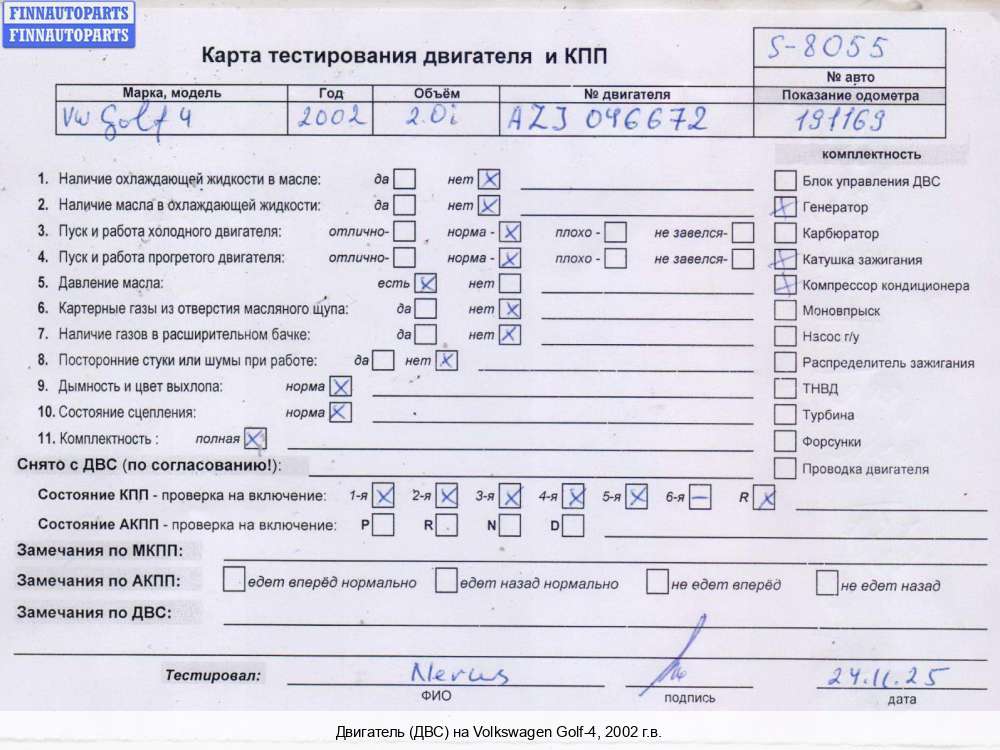 FINNAUTOPARTS
FINNAUTOPARTS
Карта тестирования двигателя и КПП
S-8055
№ авто
Марка, модель Год Объём № двигателя Показание одометра
VW Golf 4 2002 2.0i AZJ 046672 191169
комплектность
1. Наличие охлаждающей жидкости в масле: да нет
Блок управления ДВС
2. Наличие масла в охлаждающей жидкости: да нет
Генератор
3. Пуск и работа холодного двигателя: отлично- норма - плохо - не завелся-
Карбюратор
4. Пуск и работа прогретого двигателя: отлично- норма - плохо - не завелся-
Катушка зажигания
5. Давление масла: есть нет
Компрессор кондиционера
6. Картерные газы из отверстия масляного щупа: да нет
Моновпрыск
7. Наличие газов в расширительном бачке: да нет
Насос г/у
8. Посторонние стуки или шумы при работе: да нет
Распределитель зажигания
9. Дымность и цвет выхлопа: норма
ТНВД
10. Состояние сцепления: норма
Турбина
11. Комплектность : полная
Форсунки
Снято с ДВС (по согласованию!):
Проводка двигателя
Состояние КПП - проверка на включение: 1-я 2-я 3-я 4-я 5-я 6-я R
Состояние АКПП - проверка на включение: P R N D
Замечания по МКПП:
Замечания по АКПП: едет вперёд нормально едет назад нормально не едет вперёд не едет назад
Замечания по ДВС:
Тестировал: 24.11.25
ФИО подпись дата
Двигатель (ДВС) на Volkswagen Golf-4, 2002 г.в.